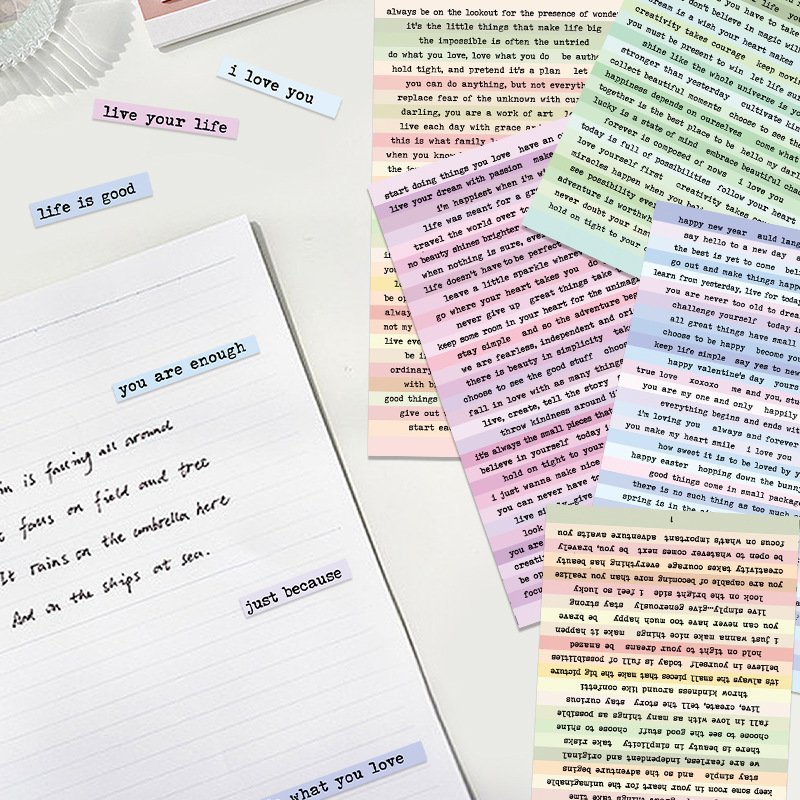 i love you
live your life
life is good
you are enough
is falling all around
on field and tree
It rains on the umbrella here
And in the ships at sea.
just because
what you love
always be on the lookout for the presence of
it's the little things that make life big
the impossible is often the untried
do what you love, love what you do be
hold tight, and pretend it's a plan let
you can do anything, but not
replace fear of the unknown with
darling, you are a work of art
live each day with grace
this is what family
when you know
start doing things you love have an
live your dream with passion make
i'm happiest when i'm
life was meant for
travel the world over
no beauty shines brighter
when nothing is sure,
life doesn't have to be perfect
leave a little sparkle where
go where your heart takes you do
never give up great things take
keep some room in your heart for the
stay simple and so the adventure
we are fearless, independent and
there is beauty in simplicity
choose to see the good stuff
fall in love with as many things
live, create, tell the story
throw kindness around
it's always the small pieces that
believe in yourself today
hold on tight to your
i just wanna make nice
you can never have
live
look
you are
be
ordinary
with
good things
give out
start
don't believe in magic
is a wish your heart makes
creativity takes courage keep
you must be present to win let life
shine like the whole universe is
stronger than yesterday cultivate
collect beautiful moments choose to see the
happiness depends on ourselves come what
together is the best place to be hello my
lucky is a state of mind embrace beautiful
forever is composed of nows i love you
today is full of possibilities follow your heart
love yourself first creativity takes
miracles happen when you
see possibility
adventure is
never doubt your
hold on tight to your
happy new year auld
say hello to a new day
the best is yet to come
go out and make things
learn from yesterday, live for
you are never too old to
challenge yourself today
all great things have small
choose to be happy become
keep life simple say yes to new
happy valentine's day yours
true love xoxoxo me and you,
you are my one and only happily
everything begins and ends
i'm loving you always and forever
you make my heart smile i love you
how sweet it is to be loved by
happy easter hopping down the
good things come in small
there is no such thing as too much
spring is in the
focus on what's important adventure awaits you
be open to whatever comes next be you, bravely
creativity takes courage everything has beauty
you are capable of becoming more than you realize
look on the bright side i feel so lucky
live simply...give generously stay strong
you can never have too much happy be brave
i just wanna make nice things make it happen
hold on tight to your dreams be amazed
believe in yourself today is full of possibilities
it's always the small pieces that make the big picture
throw kindness around like confetti
live, create, tell the story stay curious
fall in love with as many things as possible
choose to see the good stuff choose to shine
there is beauty in simplicity take risks
we are fearless, independent and original
stay simple and so the adventure begins
keep some room in your heart for the unimaginable